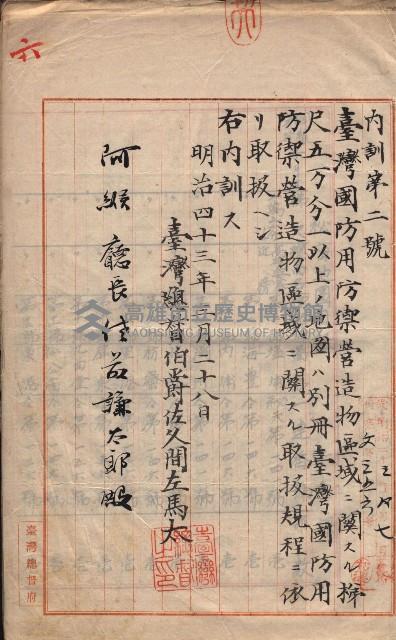 六
内訓第二號
臺灣國防用防禦營造物區域ニ關スル梯
尺五万分一以上ノ地圖ハ別冊臺灣國防用
防禦營造物區域ニ關スル取扱規程ニ依
リ取扱ヘシ
右内訓ス
明治四十三年三月二十八日
臺灣總督伯爵佐久間左馬太
阿緱廳長佐
謙太郎殿
臺灣總督府
高雄市立歷史博物館
KAOHSIUNG MUSEUM OF HISTORY